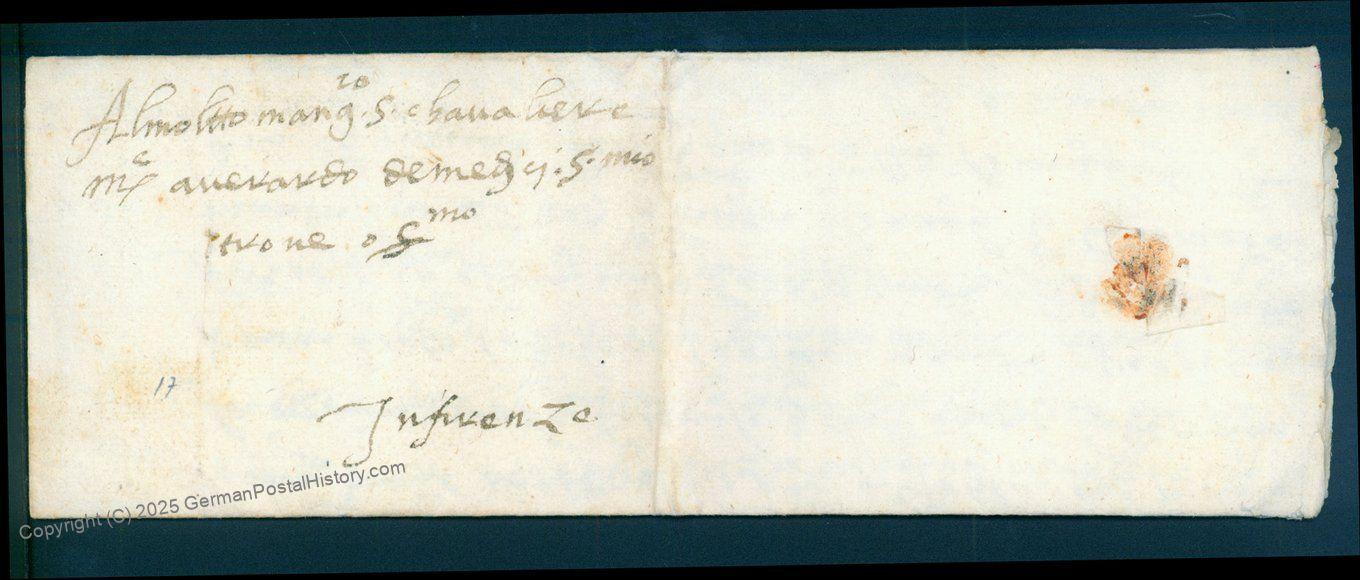 Almoltto mang.co S. chavaliere
m.e averardo demedici. S. mio
o S.mo
17
Infirenze
Copyright (C) 2025 GermanPostalHistory.com